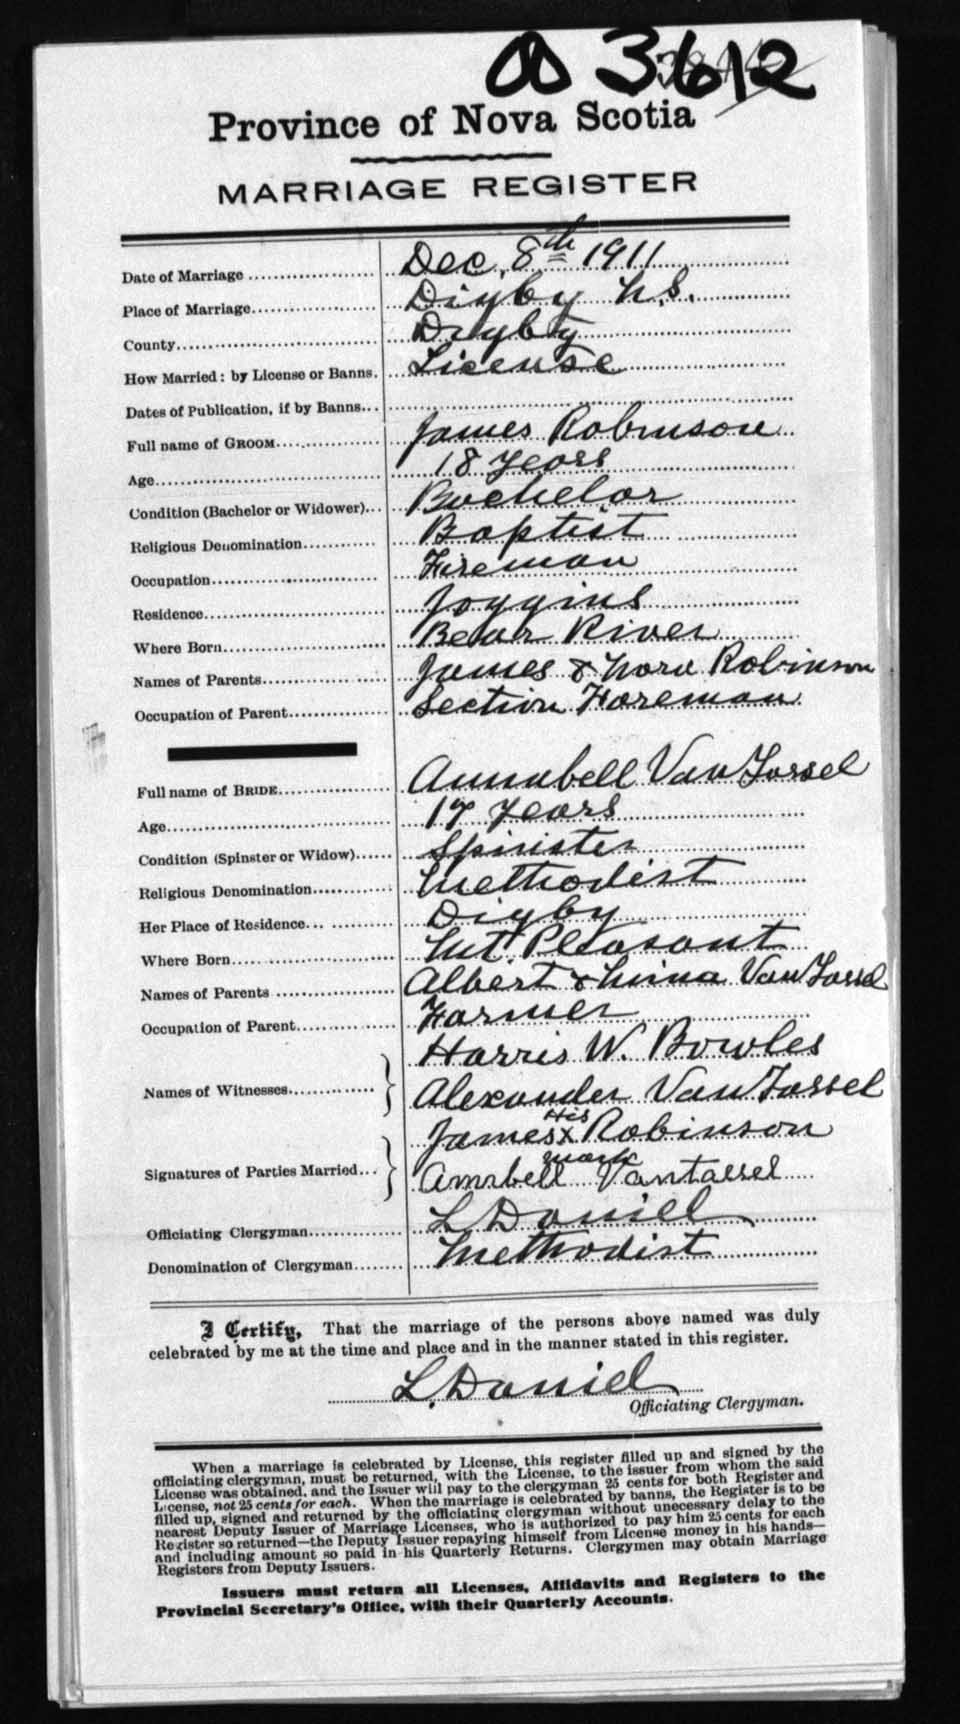 3612
Province of Nova Scotia
MARRIAGE REGISTER
Date of Marriage Dec, 8th 1911
Place of Marriage Digby N.S.
County Digby
How Married: by License or Banns. License
Dates of Publication, if by Banns
Full name of GROOM James Robinson
Age 18 years
Condition (Bachelor or Widower) Bachelor
Religious Denomination Baptist
Occupation Fireman
Residence Joggins
Where Born Bear River
Names of Parents James & Nora Robinson
Occupation of Parent Section Foreman
Full name of BRIDE Annabell VanTassel
Age 17 years
Condition (Spinster or Widow) Spinster
Religious Denomination Methodist
Her Place of Residence Digby
Where Born Mt. Pleasant
Names of Parents Albert & Mina VanTassel
Occupation of Parent Farmer
Names of Witnesses Harris W. Bowles
Alexander VanTassel
Signatures of Parties Married James His X mark Robinson
Annabell Vantassel
Officiating Clergyman L Daniel
Denomination of Clergyman Methodist
I Certify, That the marriage of the persons above named was duly
celebrated by me at the time and place and in the manner stated in this register.
L. Daniel
Officiating Clergyman.
When a marriage is celebrated by License, this register filled up and signed by the
officiating clergyman, must be returned, with the License, to the issuer from whom the said
License was obtained, and the Issuer will pay to the clergyman 25 cents for both Register and
License, not 25 cents for each. When the marriage is celebrated by banns, the Register is to be
filled up, signed and returned by the officiating clergyman without unecessary delay to the
nearest Deputy Issuer of Marriage Licenses, who is authorized to pay him 25 cents for each
Register so returned—the Deputy Issuer repaying himself from License money in his hands—
and including amount so paid in his Quarterly Returns. Clergymen may obtain Marriage
Registers from Deputy Issuers.
Issuers must return all Licenses, Affidavits and Registers to the
Provincial Secretary's Office, with their Quarterly Accounts.